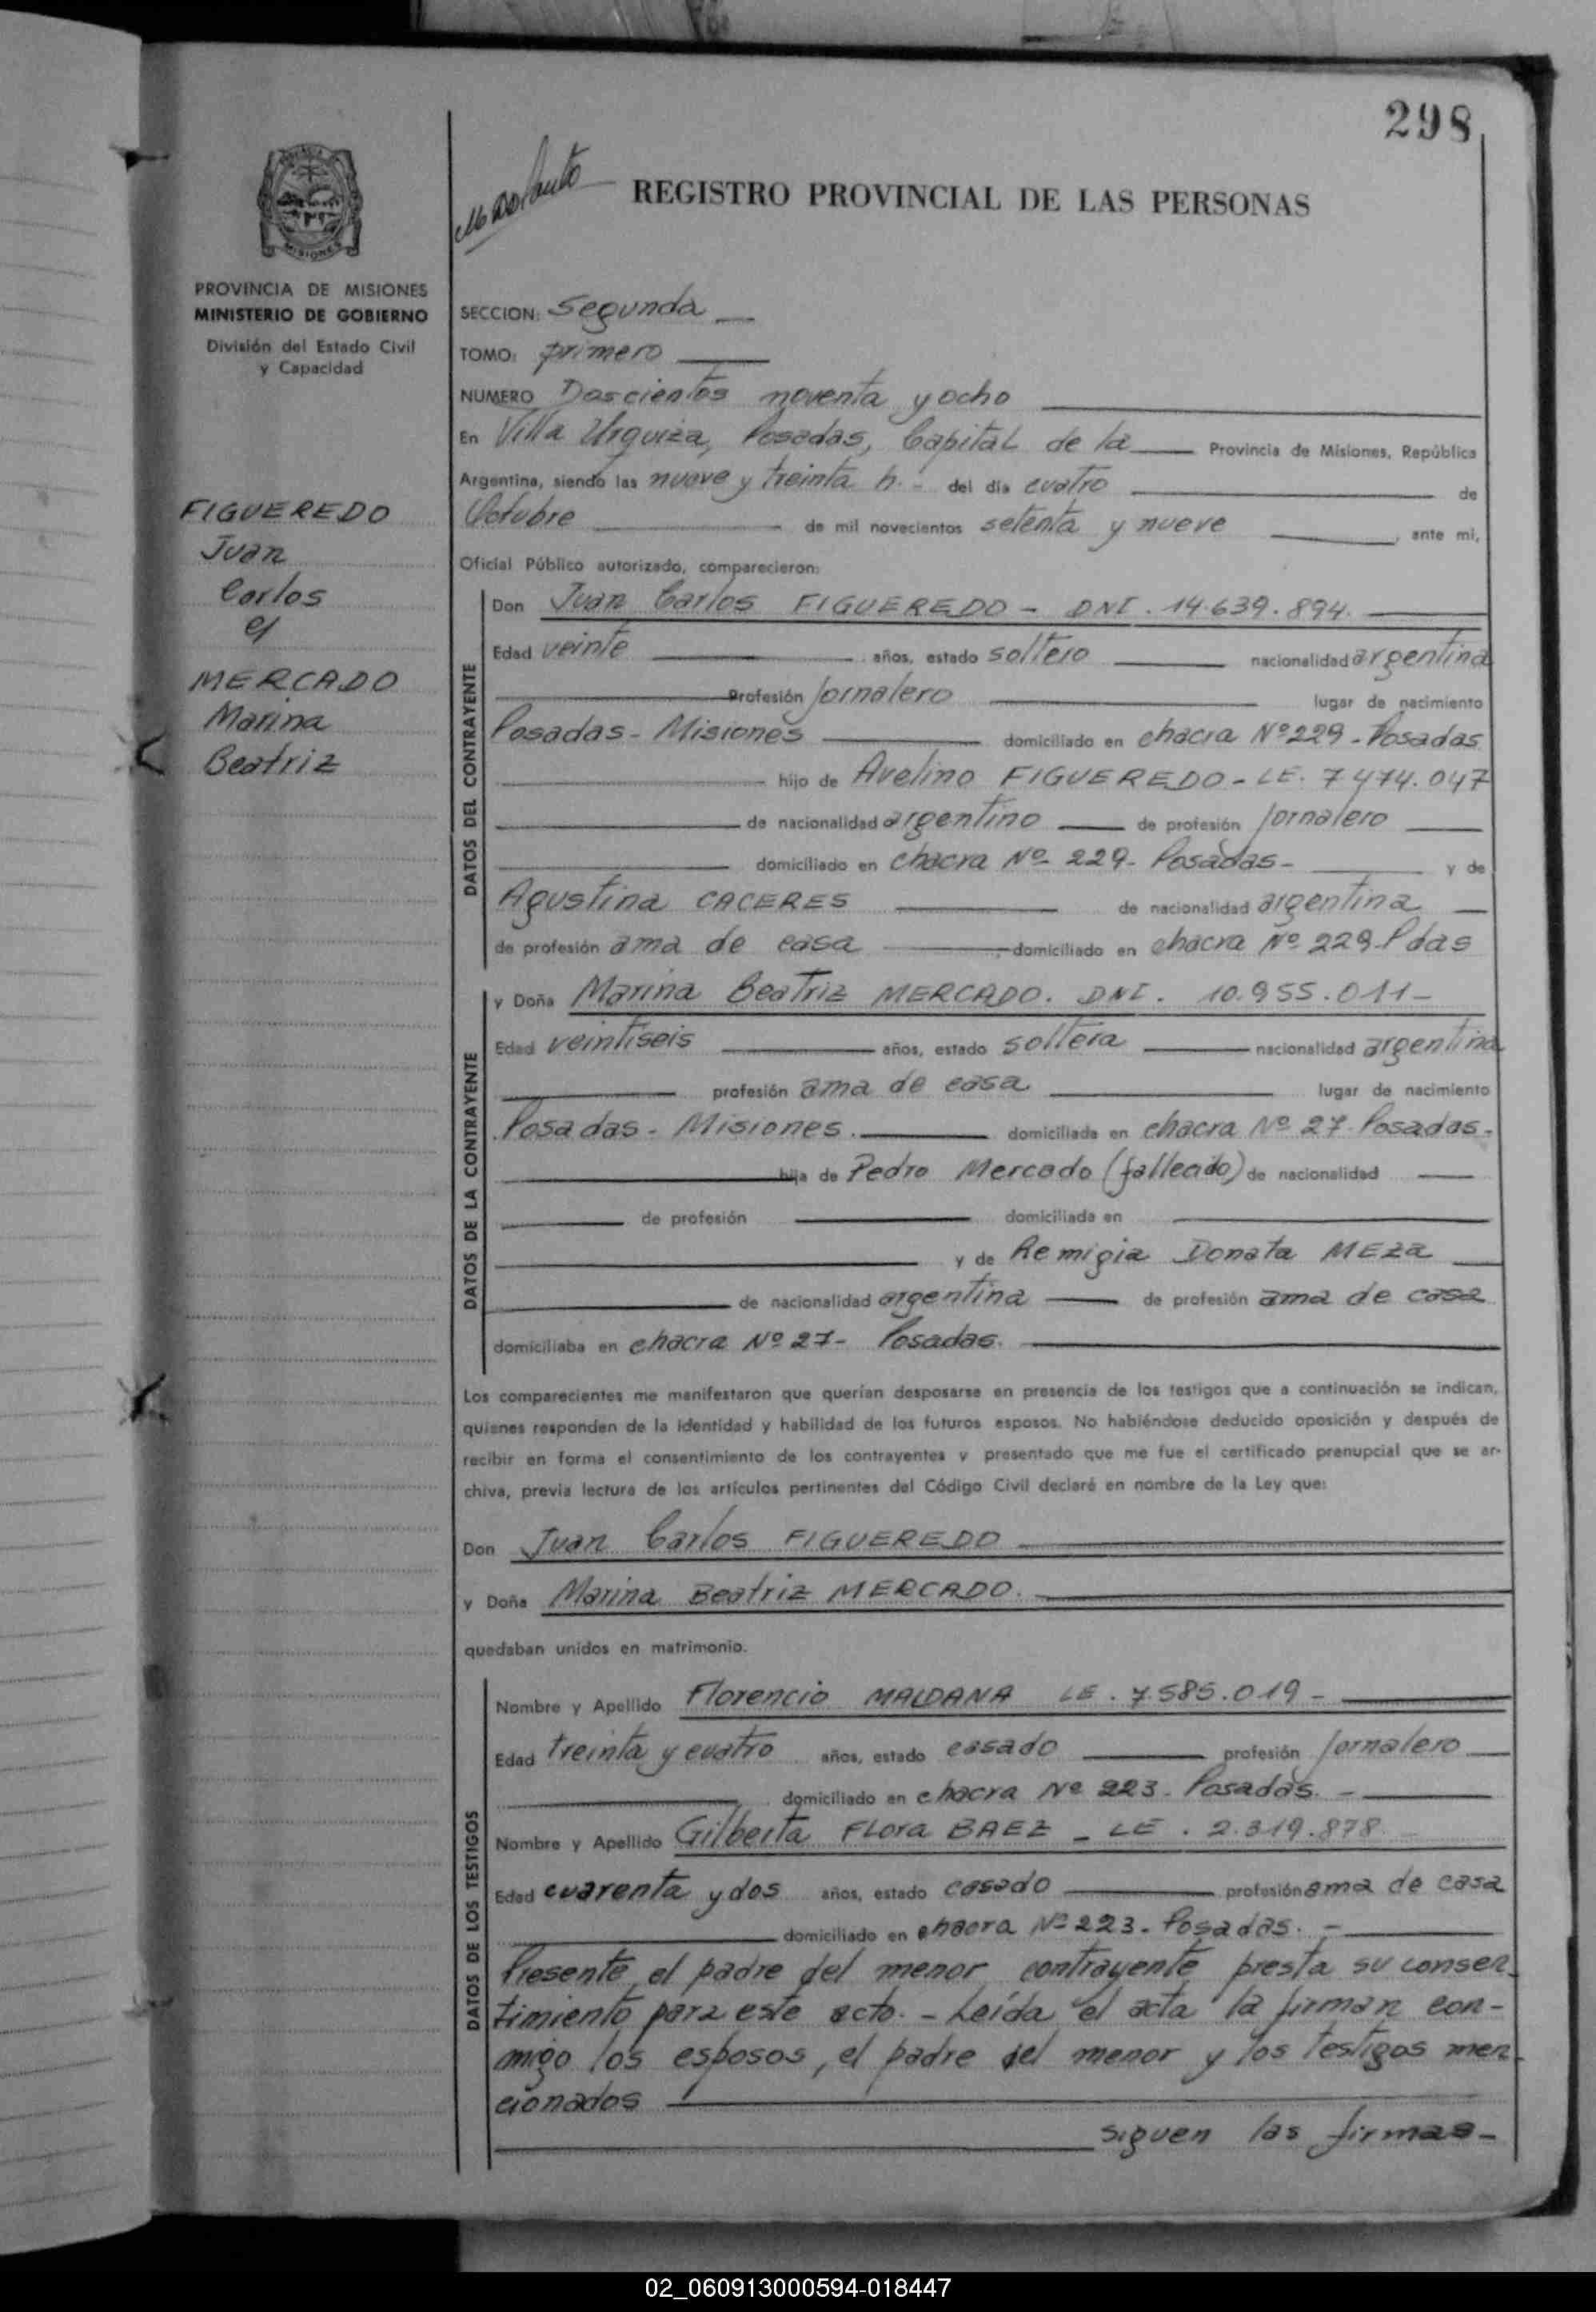 298
REGISTRO PROVINCIAL DE LAS PERSONAS
PROVINCIA DE MISIONES
MINISTERIO DE GOBIERNO
División del Estado Civil
y Capacidad
FIGUEREDO
Juan
Carlos
c/
MERCADO
Marina
Beatriz
SECCION: Segunda
TOMO: primero
NUMERO Doscientos noventa y ocho
En Villa Urquiza, Posadas, Capital de la Provincia de Misiones, República
Argentina, siendo las nueve y treinta h. - del día cuatro de
Octubre de mil novecientos setenta y nueve, ante mí,
Oficial Público autorizado, comparecieron:
DATOS DEL CONTRAYENTE
Don Juan Carlos FIGUEREDO - DNI. 14.639.894.
Edad veinte años, estado soltero nacionalidad argentina
Profesión Jornalero lugar de nacimiento
Posadas - Misiones domiciliado en chacra Nº 229 - Posadas
hijo de Avelino FIGUEREDO - LE. 7474.047
de nacionalidad argentino de profesión Jornalero
domiciliado en chacra Nº 229 - Posadas - y de
Agustina CACERES de nacionalidad argentina
de profesión ama de casa domiciliado en chacra Nº 229 - Pdas
DATOS DE LA CONTRAYENTE
y Doña Marina Beatriz MERCADO. DNI. 10.955.011 -
Edad veintiseis años, estado soltera nacionalidad argentina
profesión ama de casa lugar de nacimiento
Posadas - Misiones. domiciliada en chacra Nº 27 - Posadas -
hija de Pedro Mercado (fallecido) de nacionalidad
de profesión domiciliada en
y de Remigia Donata MEZA
de nacionalidad argentina de profesión ama de casa
domiciliaba en chacra Nº 27 - Posadas.
Los comparecientes me manifestaron que querían desposarse en presencia de los testigos que a continuación se indican,
quienes responden de la identidad y habilidad de los futuros esposos. No habiéndose deducido oposición y después de
recibir en forma el consentimiento de los contrayentes y presentado que me fue el certificado prenupcial que se ar-
chiva, previa lectura de los artículos pertinentes del Código Civil declaré en nombre de la Ley que:
Don Juan Carlos FIGUEREDO
y Doña Marina Beatriz MERCADO.
quedaban unidos en matrimonio.
DATOS DE LOS TESTIGOS
Nombre y Apellido Florencio MALDANA LE. 7.585.019 -
Edad treinta y cuatro años, estado casado profesión Jornalero
domiciliado en chacra Nº 223 - Posadas. -
Nombre y Apellido Gilberta Flora BAEZ - LE. 2.319.878
Edad cuarenta y dos años, estado casado profesión ama de casa
domiciliado en chacra Nº 223 - Posadas. -
Presente el padre del menor contrayente presta su consen-
timiento para este acto. - Leída el acta la firman con-
migo los esposos, el padre del menor y los testigos men-
cionados
siguen las firmas -
02_060913000594-018447